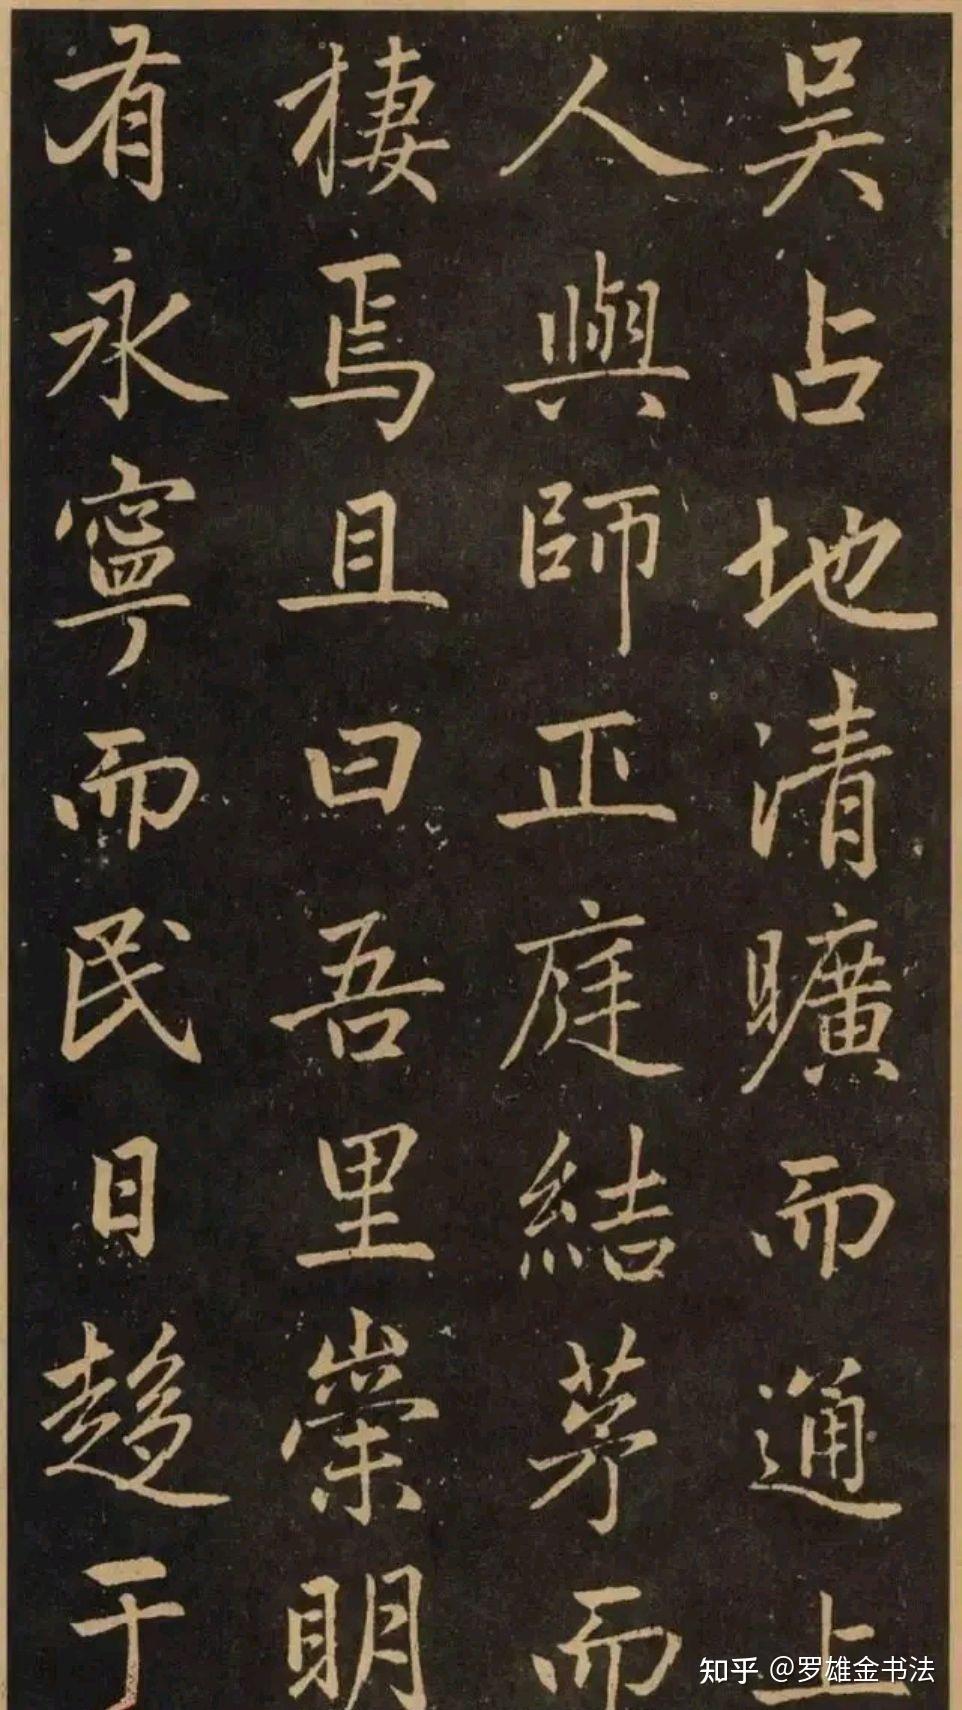 吴占地清曠而通上
人與師正庭結茅而
棲焉且曰吾里崇明
有永寧而民日趍于
知乎 @罗雄金书法